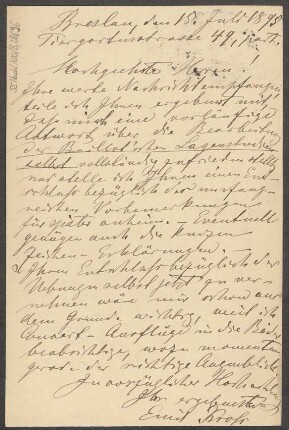 Breslau, den 15. Juli 1898
Tiergartenstrasse 49,
Hochgeehrte Herren!
Ihre werte Nachricht empfangen
teile ich Ihnen ergebenst mit,
daß mich eine vorläufige
Antwort über die Bearbeitung
der Baillot'schen Lagenstudien
selbst vollständig zufrieden stellt
und stelle ich Ihnen einen Ent-
schluss bezüglich der umfang-
reichen Vorbemerkungen
für später anheim. — Eventuell
genügen auch die kurzen
Zeichen-Erklärungen. —
Ihren Entschluss bezüglich der
Uebungen selbst jetzt zu ver-
nehmen wäre mir schon aus
dem Grunde wichtig, weil ich
Concert-Ausflüge in die Bäder
beabsichtige, wozu momentan
gerade der richtige Augenblick.
In vorzüglicher Hochachtung
Ihr ergebenster
Emil